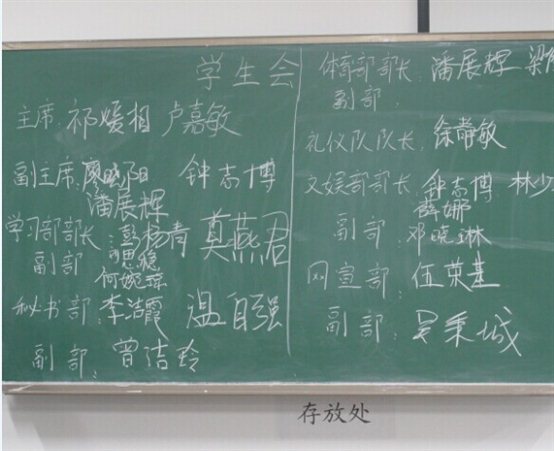 学生会
主席：祁媛相 卢嘉敏
副主席：廖晓阳 钟志博
潘展辉
学习部部长：彭杨青 莫燕君
副部：思稳
何婉萍
秘书部：李洁霞 温自强
副部：曾洁玲
体育部部长：潘展辉 梁
副部：
礼仪队队长：徐静敏
文娱部部长：钟志博 林少
薛娜
副部：邓晓琳
网宣部：伍荣基
副部：吴秉城
存放处